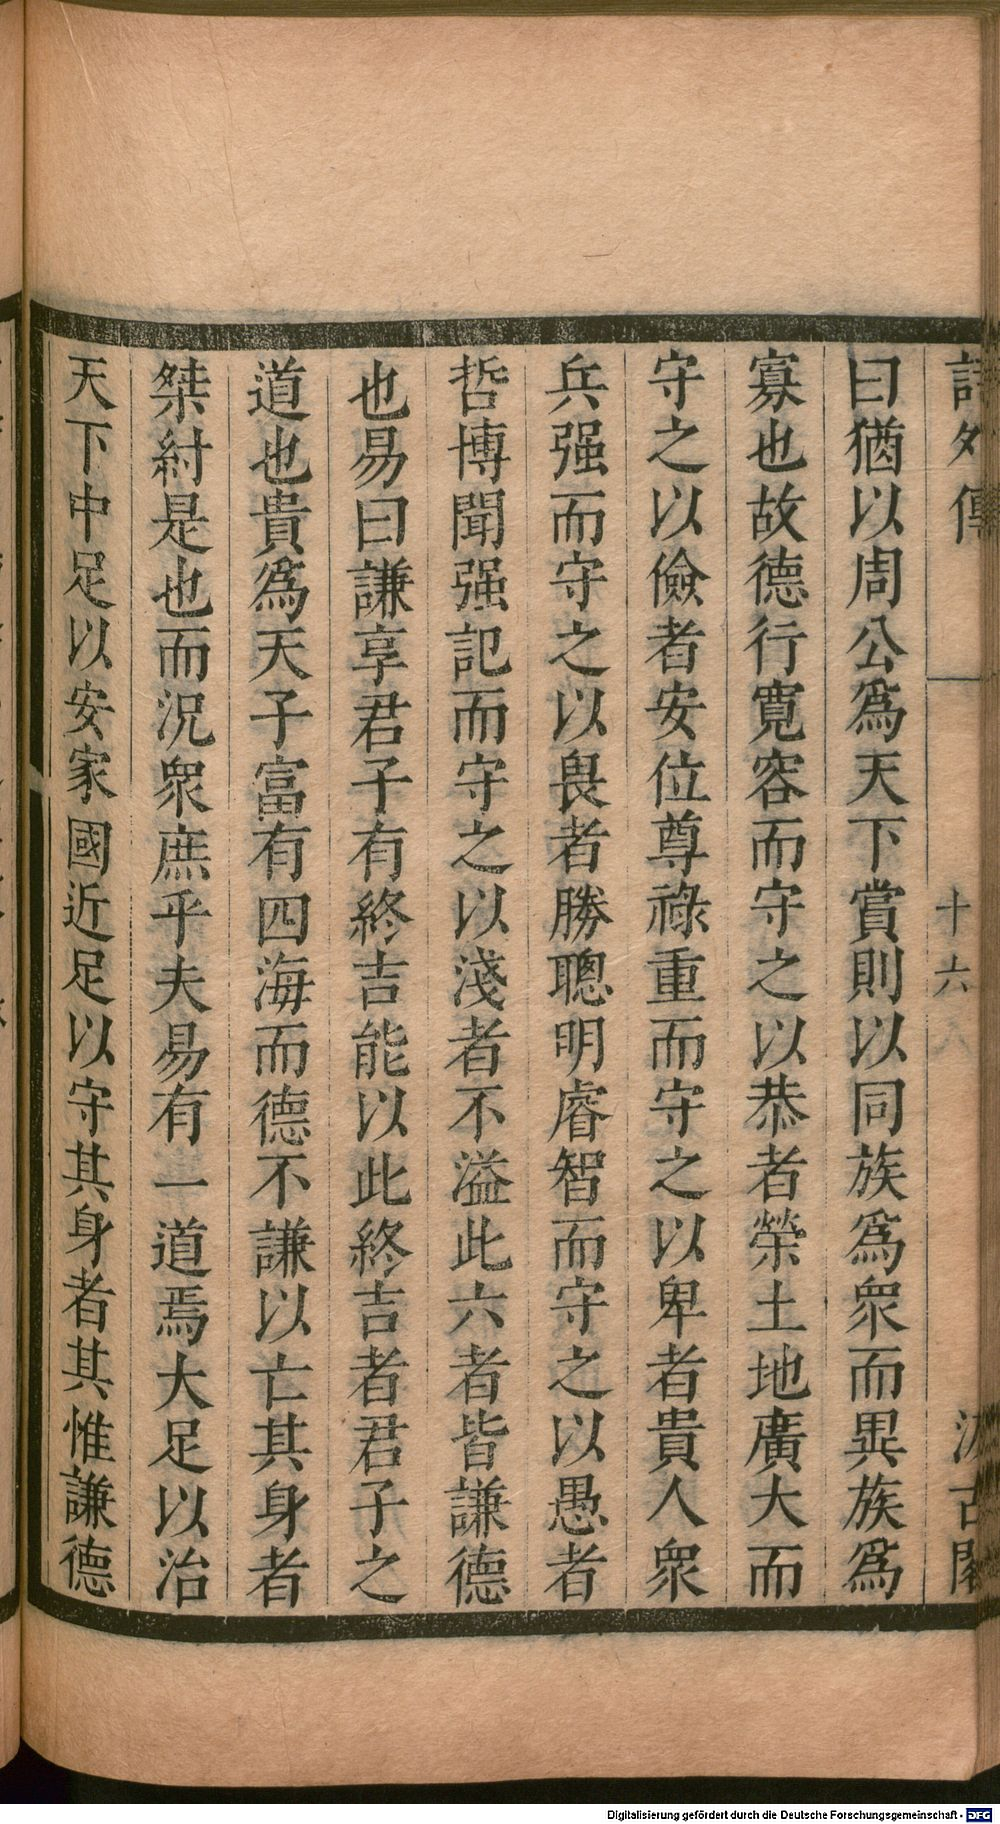 詩外傳 十六 汲古閣
曰猶以周公爲天下賞則以同族爲衆而異族爲
寡也故德行寬容而守之以恭者榮土地廣大而
守之以儉者安位尊祿重而守之以卑者貴人衆
兵强而守之以畏者勝聰明睿智而守之以愚者
哲博聞强記而守之以淺者不溢此六者皆謙德
也易曰謙享君子有終吉能以此終吉者君子之
道也貴爲天子富有四海而德不謙以亡其身者
桀紂是也而況衆庶乎夫易有一道焉大足以治
天下中足以安家國近足以守其身者其惟謙德
Digitalisierung gefördert durch die Deutsche Forschungsgemeinschaft - DFG